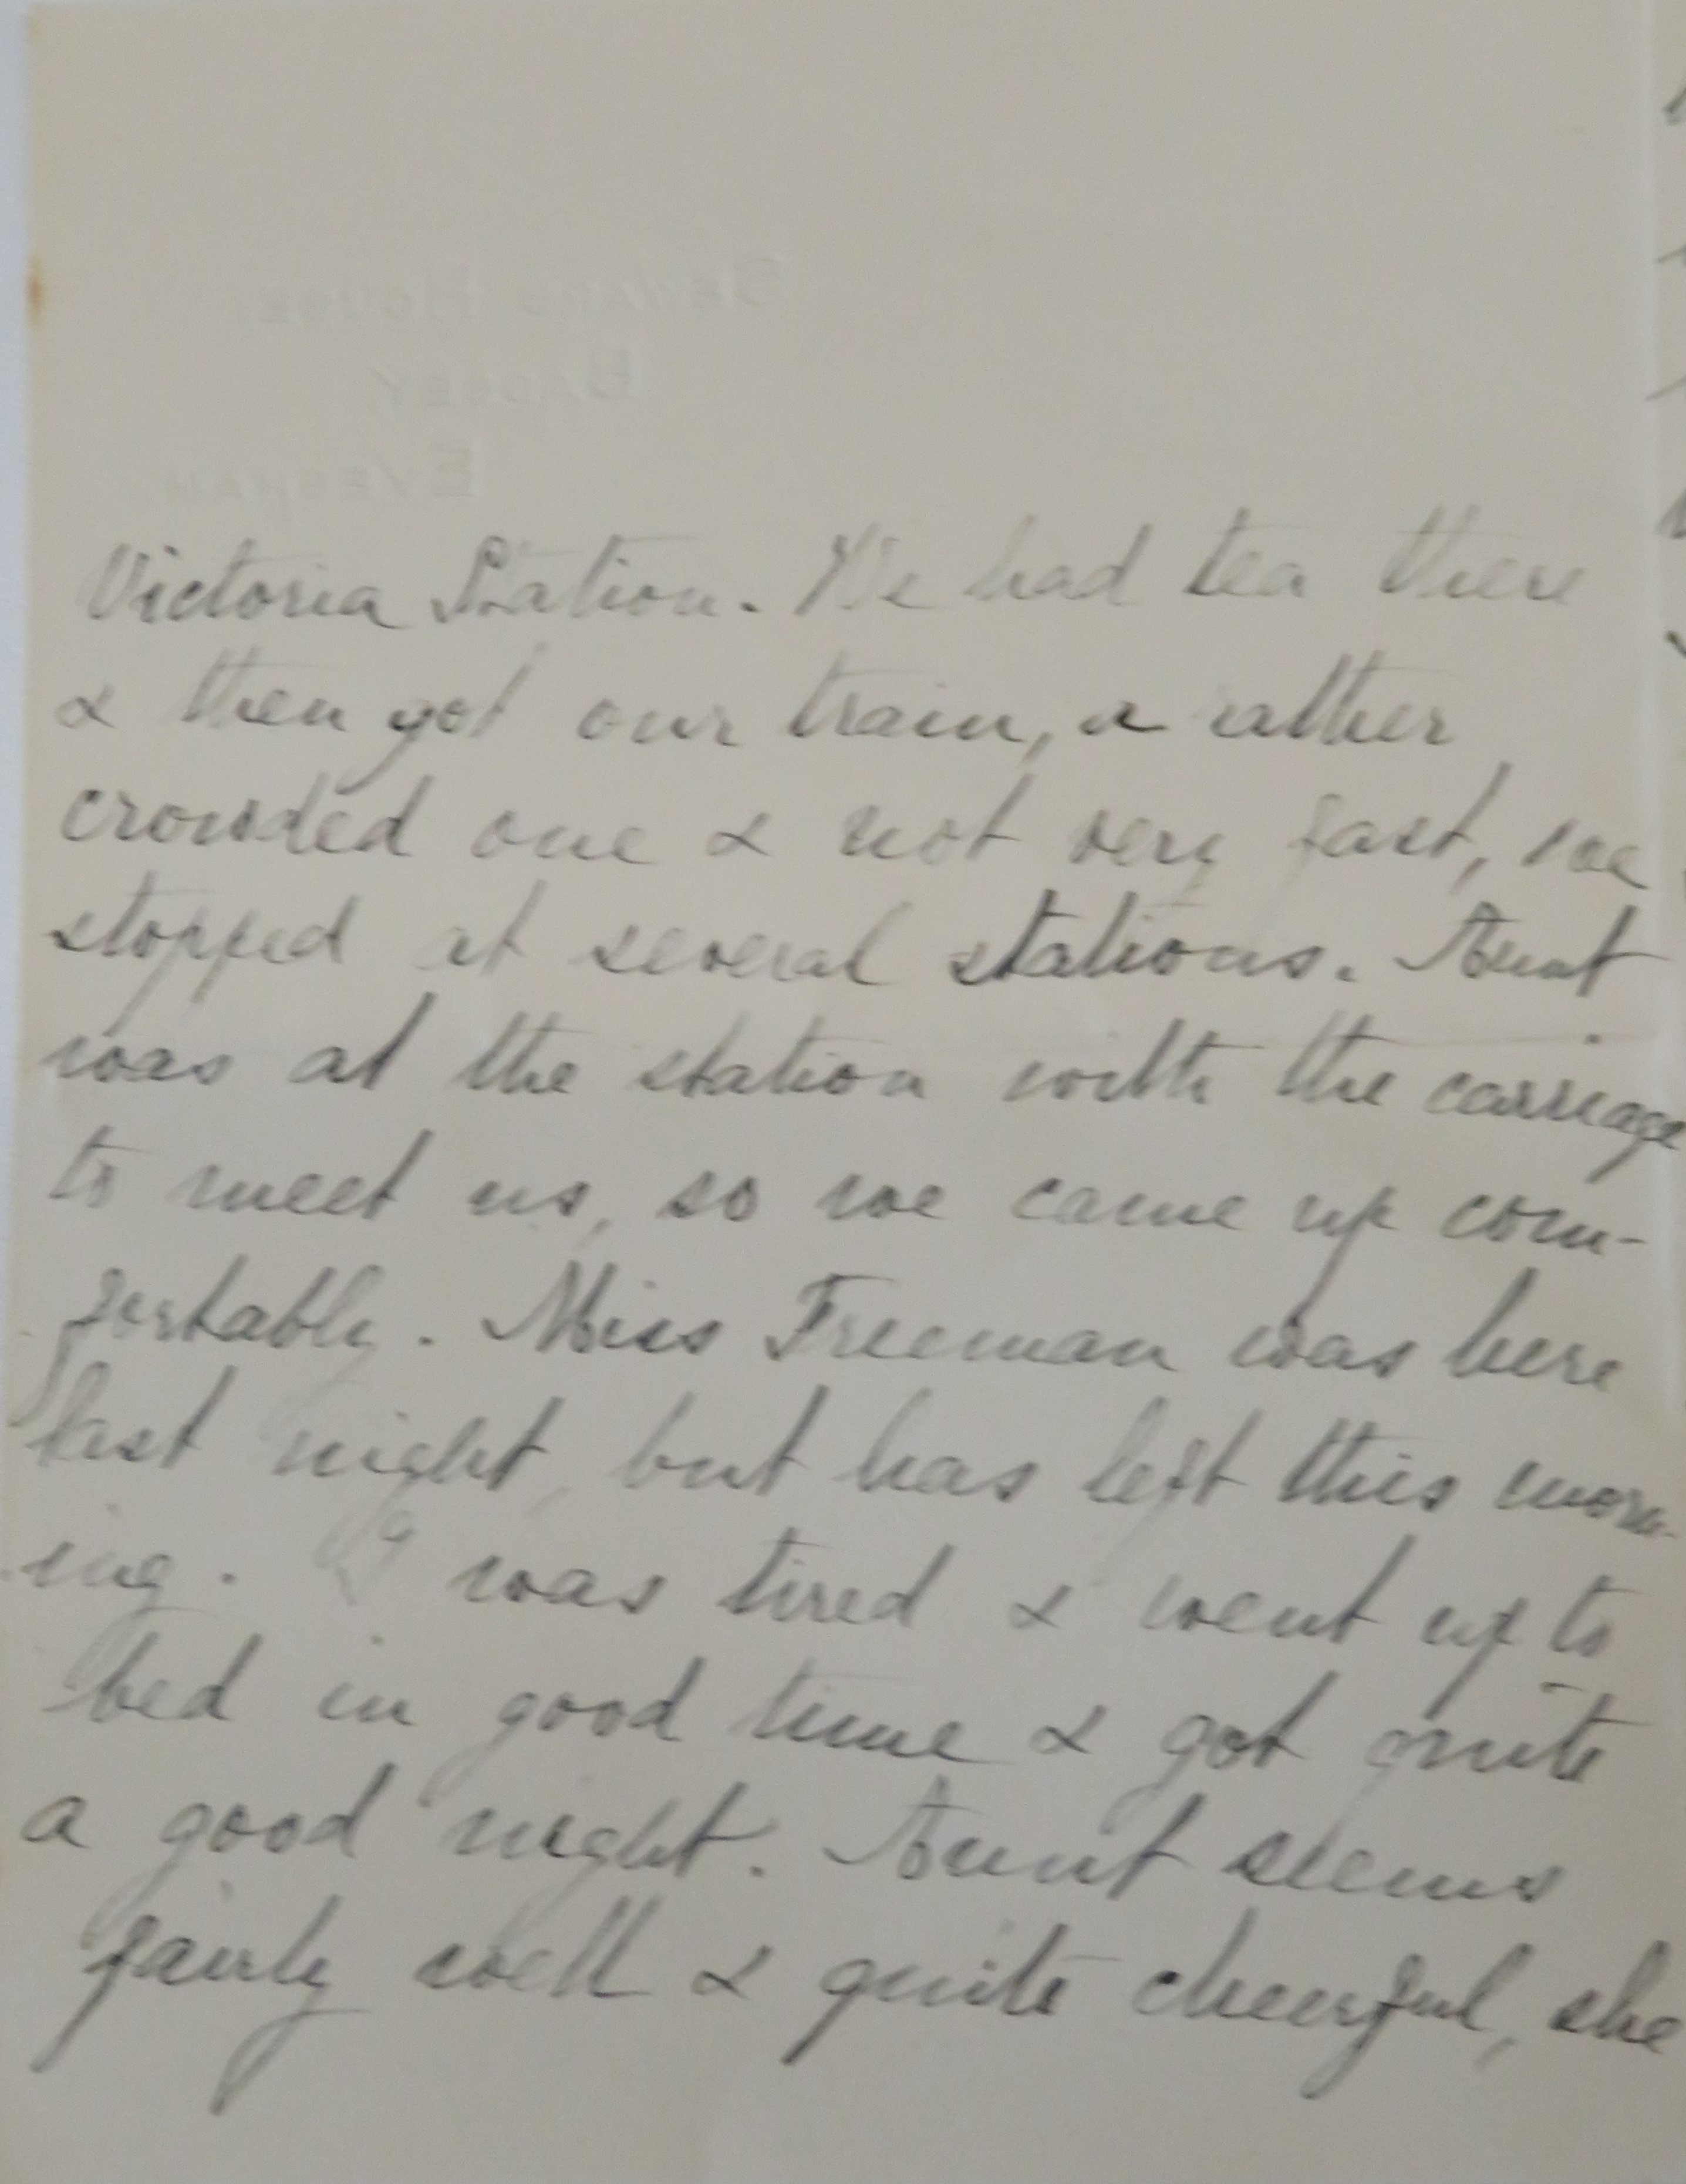 SEWARD HOUSE,
BADSEY,
EVESHAM.
Victoria Station. We had tea there
& then got our train, a rather
crowded one & not very fast, we
stopped at several stations. Aunt
was at the station with the carriage
to meet us, so we came up com-
fortably. Miss Freeman was here
last night, but has left this morn-
ing. I was tired & went up to
bed in good time & got quite
a good night. Aunt seems
fairly well & quite cheerful, she